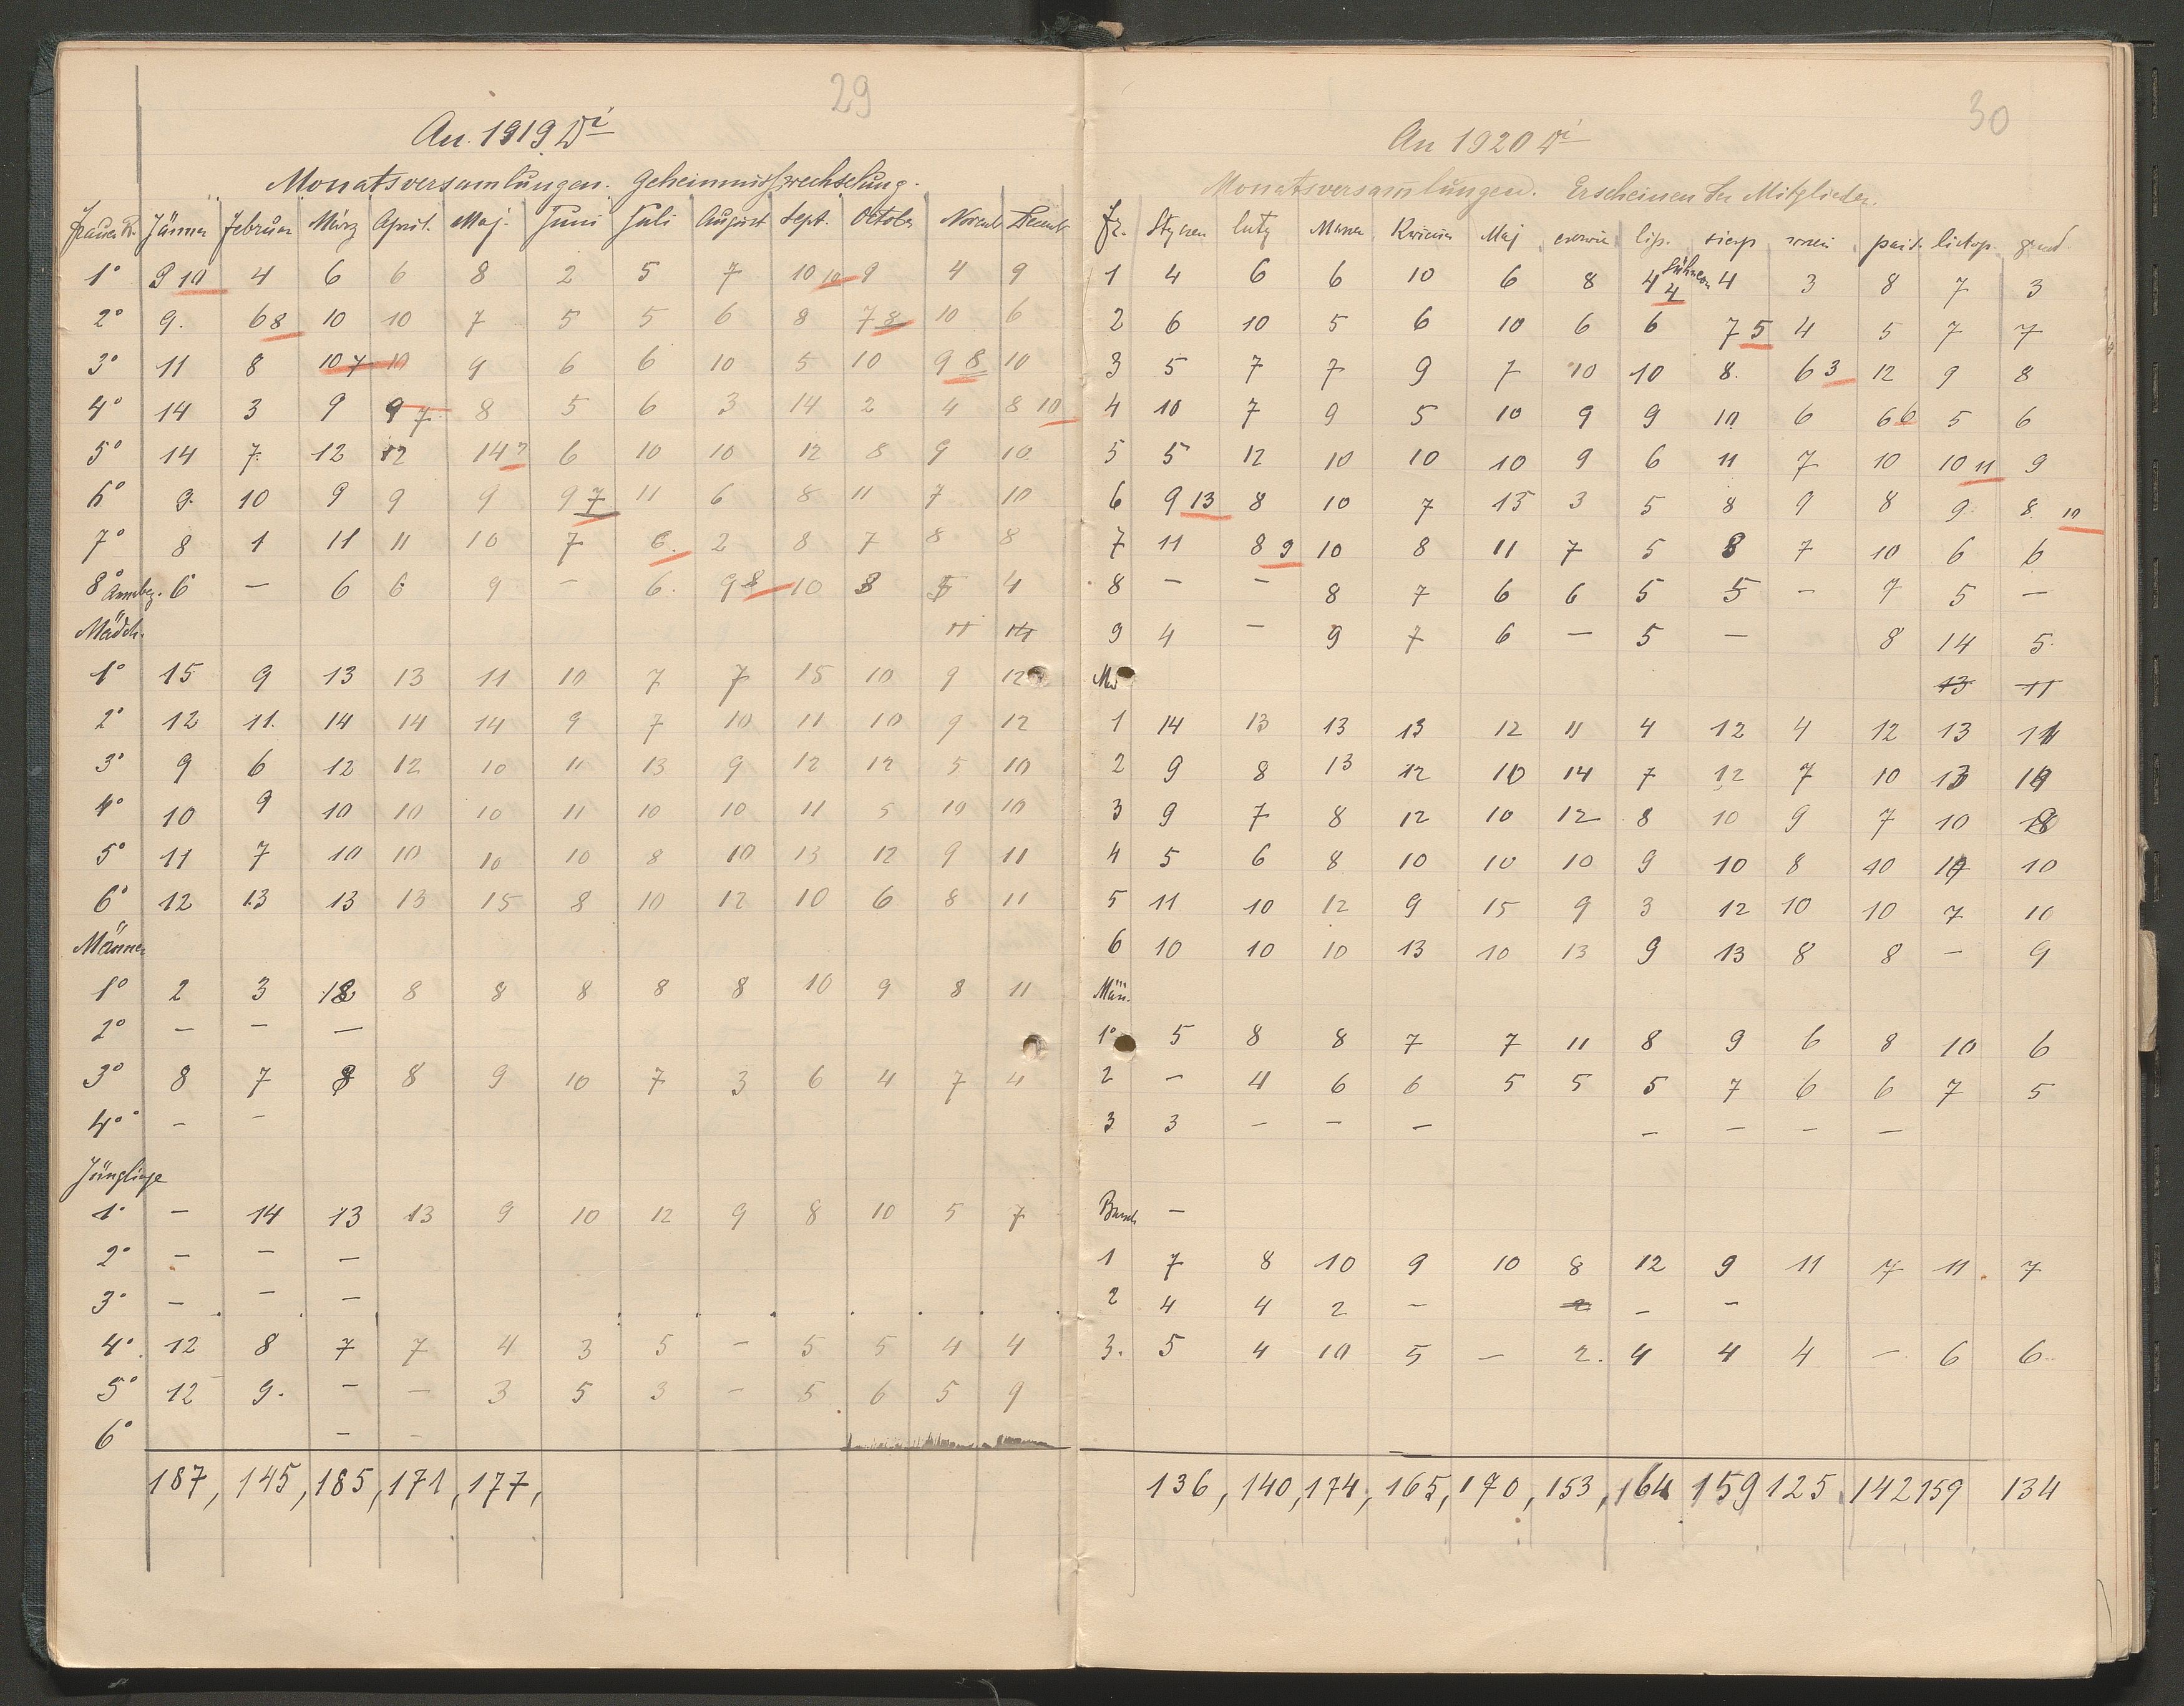 29
An. 1919 Di
Monatsversamlungen. Geheimnisswechselung.
Frauen R. Jänner Februar März April. Maj. Juni Juli August Sept. October Novemb Decemb
1° 9 10 4 6 6 8 2 5 7 10 10 9 4 9
2° 9. 6 8 10 10 7 5 5 6 8 7 8 10 6
3° 11 8 10 7 10 9 6 6 10 5 10 9 8 10
4° 14 3 9 9 7 8 5 6 3 14 2 4 8 10
5° 14 7. 12 12 14 7 6 10 10 12 8 9 10
6° 9. 10 9 9 9 9 7 11 6 8 11 7 10
7° 8 1 11 11 10 7 6. 2 8 7 8 8
8° Annabg. 6 — 6 6 9 — 6. 9 8 10 3 5 4
Mädch. 11 14
1° 15 9 13 13 11 10 7 7 15 10 9 12
2° 12 11. 14 14 14 9 7 10 11 10 9 12
3° 9 6 12 12 10 11 13 9 12 12 5 10
4° 10 9 10 10 10 11 10 10 11 5 10 10
5° 11 7 10 10 10 10 8 10 13 12 9 11
6° 12 13 13 13 15 8 10 12 10 6 8 11
Männer
1° 2 3 8 8 8 8 8 10 9 8 11
2° — — —
3° 8 7 8 8 9 10 7 3 6 4 7 4
4° — —
Jünglinge
1° — 14 13 13 9 10 12 9 8 10 5 7
2° — — —
3° — — —
4° 12 8 7 7 4 3 5 — 5 5 4 4
5° 12 9. — — 3 5 3 — 5 6 5 9
6° — —
187, 145, 185, 171, 177,
30
An 1920 Di
Monatsversammlungen. Erscheinen der Mitglieder.
Fr. Styczen luty Marzec Kwiecien Maj czerwiec lip. sierp wrzesi paźd. listop. grud.
1 4 6 6 10 6 8 4 4 4 3 8 7 3
2 6 10 5 6 10 6 6 7 5 4 5 7 7
3 5 7 7 9 7 10 10 8. 6 3 12 9 8
4 10 7 9 5 10 9 9 10 6 6 6 5 6
5 5 12 10 10 10 9 6 11 7 10 10 11 9
6 9 13 8 10 7 15 3 5 8 9 8 9 8 10
7 11 8 9 10 8 11 7 5 8 7 10 6 6
8 — — 8 7 6 6 5 5 — 7 5 —
9 4 — 9 7 6 — 5 — 8 14 5.
Mä 13 11
1 14 13 13 13 12 11 4 12 4 12 13 11
2 9 8 13 12 10 14 7 12 7 10 13
3 9 7 8 12 10 12 8 10 9 7 10
4 5 6 8 10 10 10 9 10 8 10 10
5 11 10 12 9 15 9 3 12 10 10 7 10
6 10 10 10 13 10 13 9 13 8 8 — 9
Män.
1° 5 8 8 7 7 11 8 9 6 8 10 6
2 — 4 6 6 5 5 5 7 6 6 7 5
3 3 — — — — — — —
Bursch —
1 7 8 10 9 10 8 12 9 11 7 11. 7
2 4 4 2 — 2 — —
3. 5 4 10 5 — 2. 4 4 4 — 6 6
136, 140, 174, 165, 170, 153, 164 159 125 142 159 134